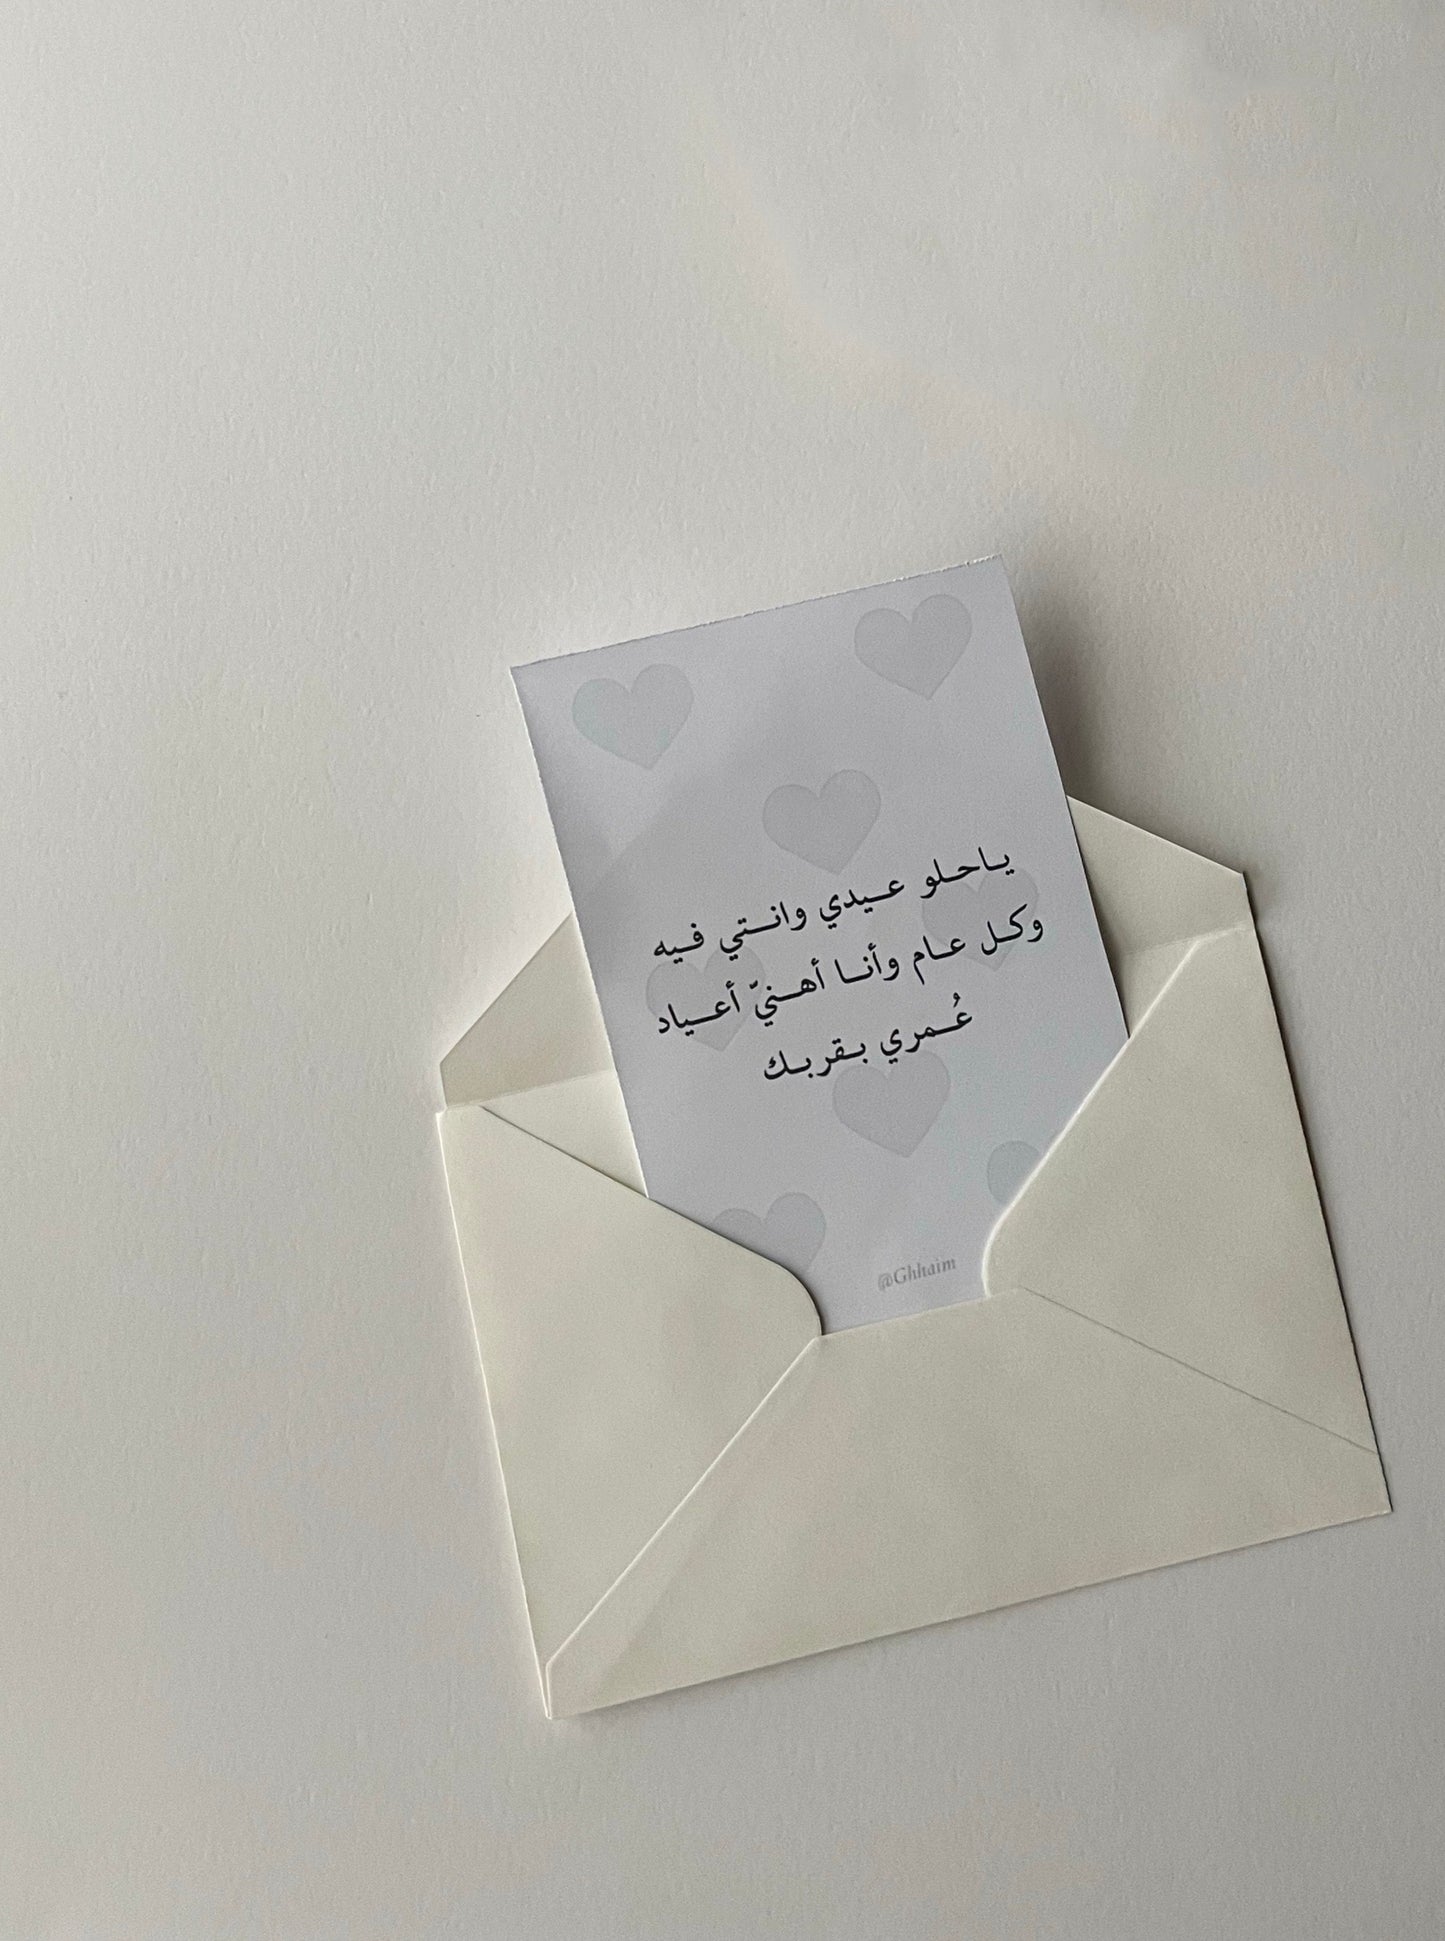 ياحلو عيدي وانتي فيه
وكل عام وأنا أهنيّ أعياد
عُمري بقربك
@Ghhaim